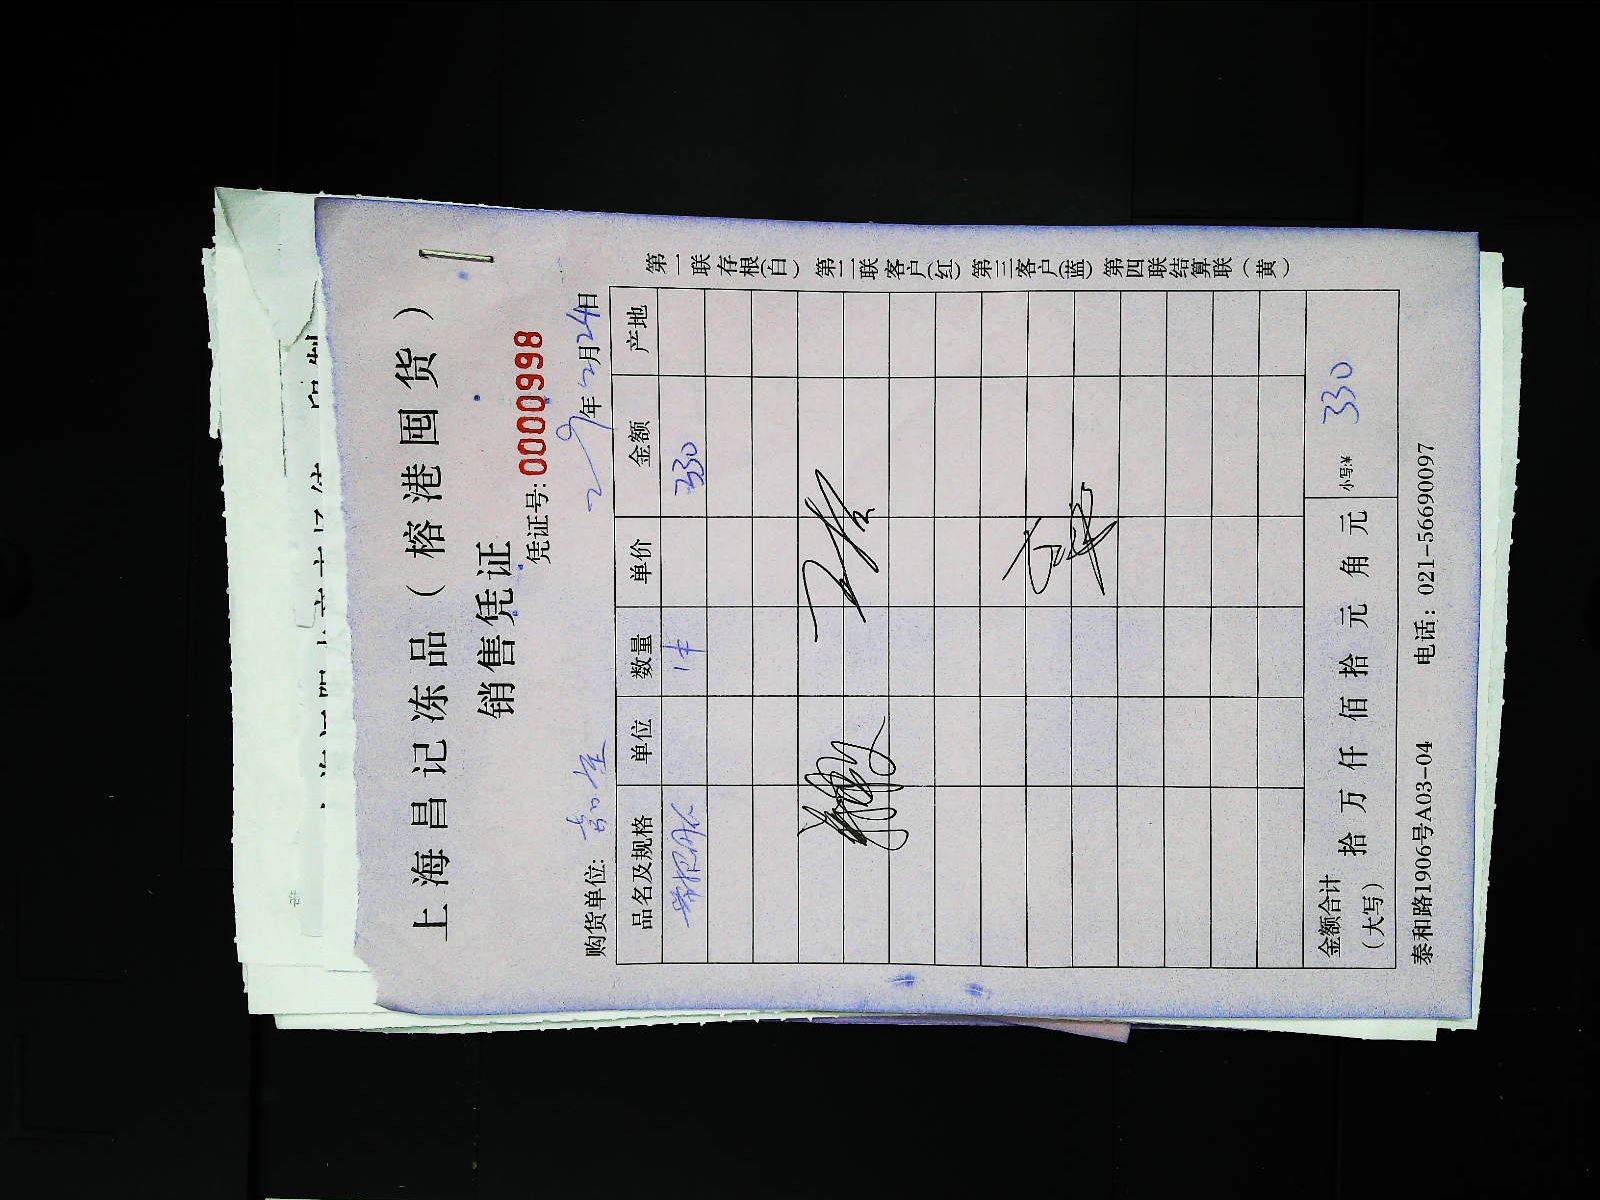 上海昌记冻品（榕港囤货）
销售凭证
凭证号: 0000998
购货单位: 年 2月24日
品名及规格 单位 数量 单价 金额 产地
1件 330
金额合计（大写） 拾 万 仟 佰 拾 元 角 元 小写:¥ 330
泰和路1906号A03-04 电话: 021-56690097
第一联存根(白) 第二联客户(红) 第三客户(蓝) 第四联结算联(黄)